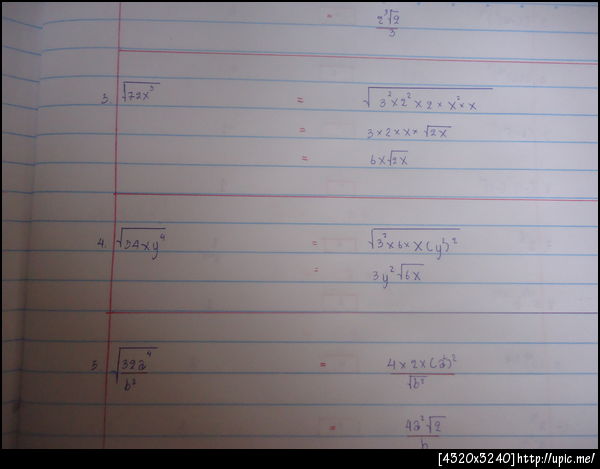 = 2³√2
3
3. √72x³ = √3² × 2² × 2 × x² × x
= 3 × 2 × x × √2x
= 6x√2x
4. √54xy⁴ = √3² × 6x × (y²)²
= 3y²√6x
5. √32a⁴ = 4 × 2 × (a²)²
b² √b²
= 4a²√2
b
[4320x3240]http://upic.me/